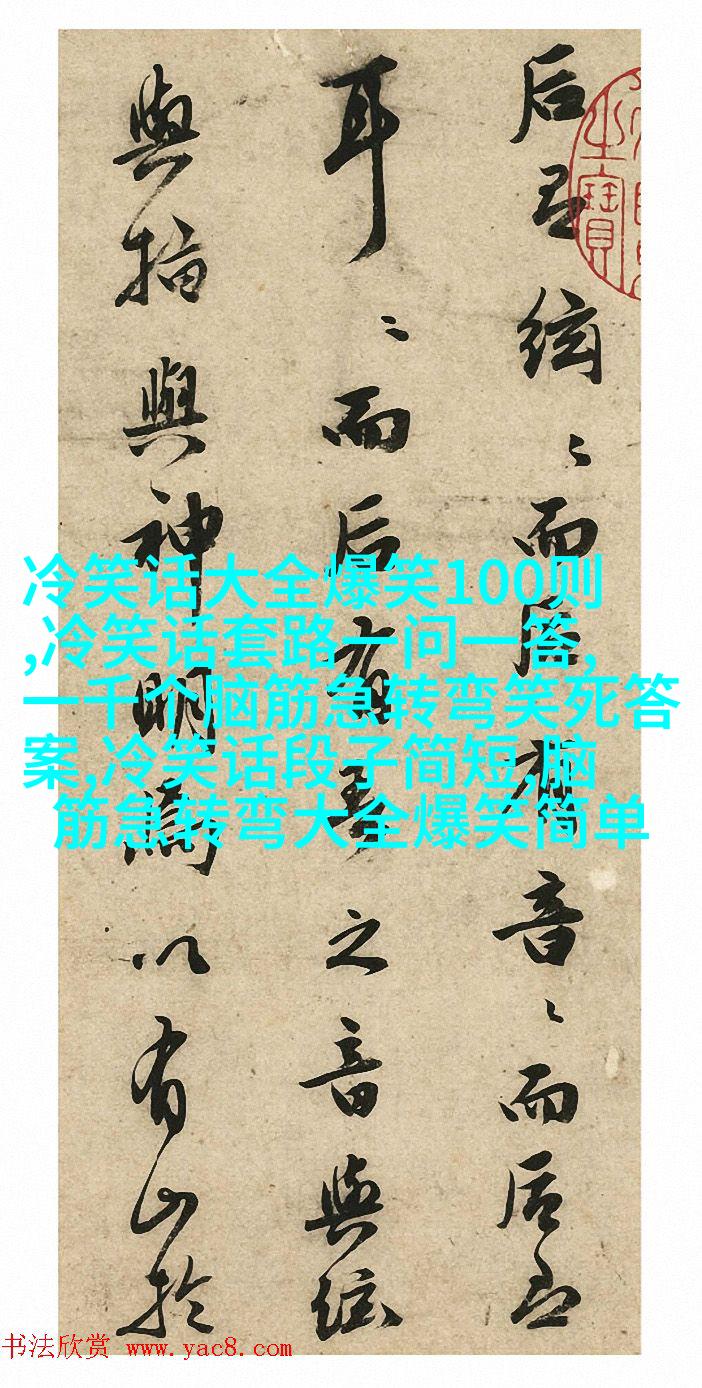 后絃〻而后有音〻而后
耳〻而后有琴之音與絃
與指與神明以有山於
之寶
冷笑话大全爆笑100则
,冷笑话套路一问一答,
一千个脑筋急转弯笑死答
案,冷笑话段子简短,脑
筋急转弯大全爆笑简单
书法欣赏 www.yac8.com